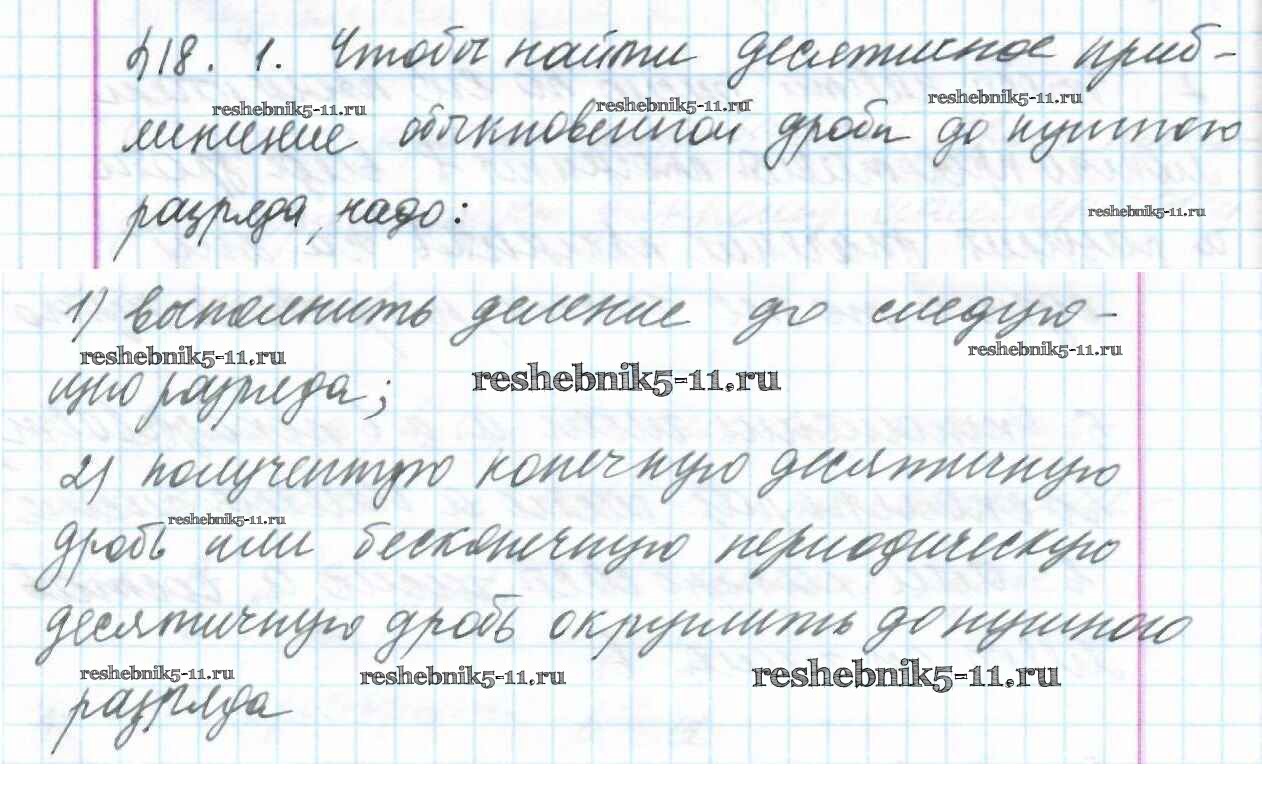 §18. 1. Чтобы найти десятичное приб-
reshebnik5-11.ru reshebnik5-11.ru reshebnik5-11.ru
лижение обыкновенной дроби до нужного
разряда, надо:
reshebnik5-11.ru
1) выполнить деление до следую-
reshebnik5-11.ru reshebnik5-11.ru
щего разряда;
reshebnik5-11.ru
2) полученную конечную десятичную
reshebnik5-11.ru
дробь или бесконечную периодическую
десятичную дробь округлить до нужного
reshebnik5-11.ru reshebnik5-11.ru reshebnik5-11.ru
разряда